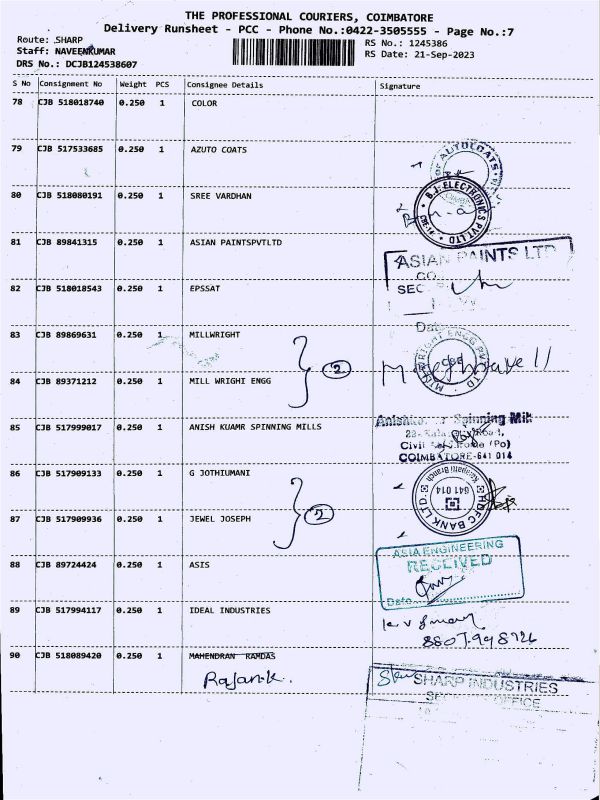 THE PROFESSIONAL COURIERS, COIMBATORE
Delivery Runsheet - PCC - Phone No.:0422-3505555 - Page No.:7
Route: SHARP
Staff: NAVEENKUMAR
DRS No.: DCJB124538607
RS No.: 1245386
RS Date: 21-Sep-2023
S No Consignment No Weight PCS Consignee Details Signature
78 CJB 518018740 0.250 1 COLOR
79 CJB 517533685 0.250 1 AZUTO COATS
AUTOCOATS
80 CJB 518080191 0.250 1 SREE VARDHAN
B.J. ELECTRONICS PVT LTD
81 CJB 89841315 0.250 1 ASIAN PAINTSPVTLTD
ASIAN PAINTS LTD
82 CJB 518018543 0.250 1 EPSSAT
SEC
83 CJB 89869631 0.250 1 MILLWRIGHT
MILLWRIGHT ENGG PVT LTD
2
84 CJB 89371212 0.250 1 MILL WRIGHI ENGG
85 CJB 517999017 0.250 1 ANISH KUAMR SPINNING MILLS
Spinning Mill
Civil (Po)
COIMBATORE-641 014
86 CJB 517909133 0.250 1 G JOTHIUMANI
HDFC BANK LTD.
Branch
641 014
2
87 CJB 517909936 0.250 1 JEWEL JOSEPH
88 CJB 89724424 0.250 1 ASIS
ASIA ENGINEERING
RECEIVED
Date
89 CJB 517994117 0.250 1 IDEAL INDUSTRIES
8807998726
90 CJB 518089420 0.250 1 MAHENDRAN RAMDAS
SHARP INDUSTRIES
OFFICE